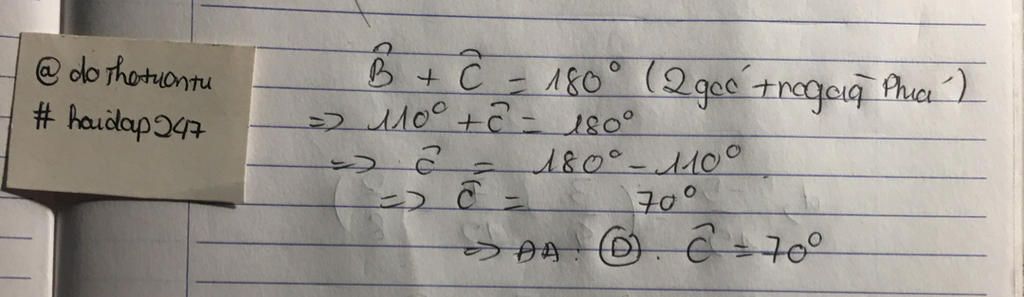 @ dothotuontu
# hoidap247
B̂ + Ĉ = 180° (2 góc trong cùng phía)
=> 110° + Ĉ = 180°
=> Ĉ = 180° - 110°
=> Ĉ = 70°
=> ĐA: D. Ĉ = 70°